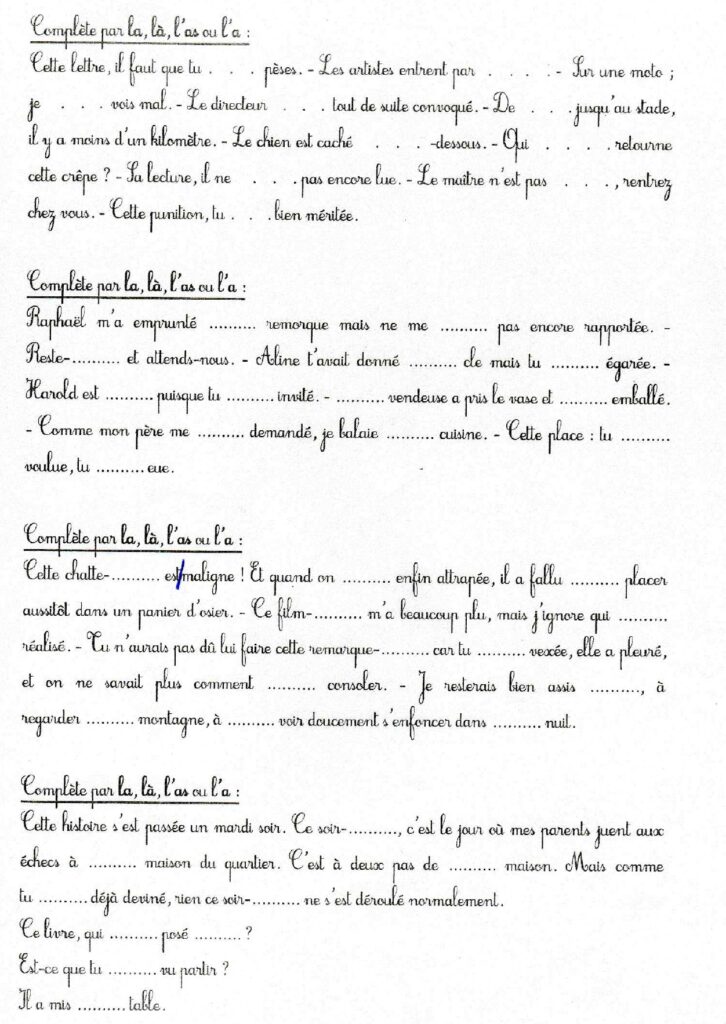 Complète par la, là, l'as ou l'a :
Cette lettre, il faut que tu . . . pèses. - Les artistes entrent par . . . . - Sur une moto ;
je . . . vois mal. - Le directeur . . . tout de suite convoqué. - De . . . jusqu'au stade,
il y a moins d'un kilomètre. - Le chien est caché . . . -dessous. - Qui . . . . retourne
cette crêpe ? - Sa lecture, il ne . . . pas encore lue. - Le maître n'est pas . . . , rentrez
chez vous. - Cette punition, tu . . . bien méritée.
Complète par la, là, l'as ou l'a :
Raphaël m'a emprunté .......... remorque mais ne me .......... pas encore rapportée. -
Reste-.......... et attends-nous. - Aline t'avait donné .......... cle mais tu .......... égarée. -
Harold est .......... puisque tu .......... invité. - .......... vendeuse a pris le vase et .......... emballé.
- Comme mon père me .......... demandé, je balaie .......... cuisine. - Cette place : tu ..........
voulue, tu .......... eue.
Complète par la, là, l'as ou l'a :
Cette chatte-.......... est/maligne ! Et quand on .......... enfin attrapée, il a fallu .......... placer
aussitôt dans un panier d'osier. - Ce film-.......... m'a beaucoup plu, mais j'ignore qui ..........
réalisé. - Tu n'aurais pas dû lui faire cette remarque-.......... car tu .......... vexée, elle a pleuré,
et on ne savait plus comment .......... consoler. - Je resterais bien assis .........., à
regarder .......... montagne, à .......... voir doucement s'enfoncer dans .......... nuit.
Complète par la, là, l'as ou l'a :
Cette histoire s'est passée un mardi soir. Ce soir-.........., c'est le jour où mes parents juent aux
échecs à .......... maison du quartier. C'est à deux pas de .......... maison. Mais comme
tu .......... déjà deviné, rien ce soir-.......... ne s'est déroulé normalement.
Ce livre, qui .......... posé .......... ?
Est-ce que tu .......... vu partir ?
Il a mis .......... table.